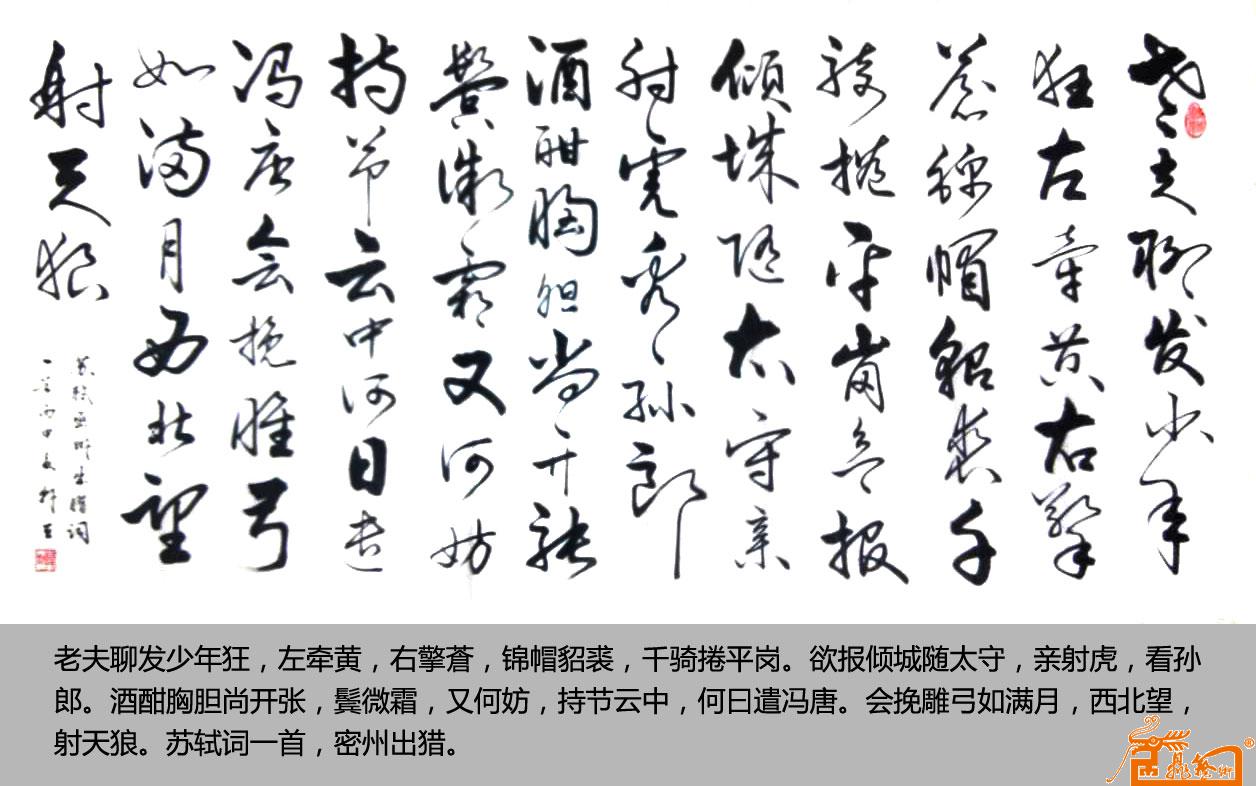 老夫聊发少年
狂左牵黄右擎
蒼锦帽貂裘千
骑捲平岗欲报
倾城随太守亲
射虎看孙郎
酒酣胸胆尚开张
鬓微霜又何妨
持节云中何日遣
冯唐会挽雕弓
如满月西北望
射天狼
苏轼密州出猎词
一首丙申
老夫聊发少年狂，左牵黄，右擎蒼，锦帽貂裘，千骑捲平岗。欲报倾城随太守，亲射虎，看孙
郎。酒酣胸胆尚开张，鬓微霜，又何妨，持节云中，何曰遣冯唐。会挽雕弓如满月，西北望，
射天狼。苏轼词一首，密州出猎。